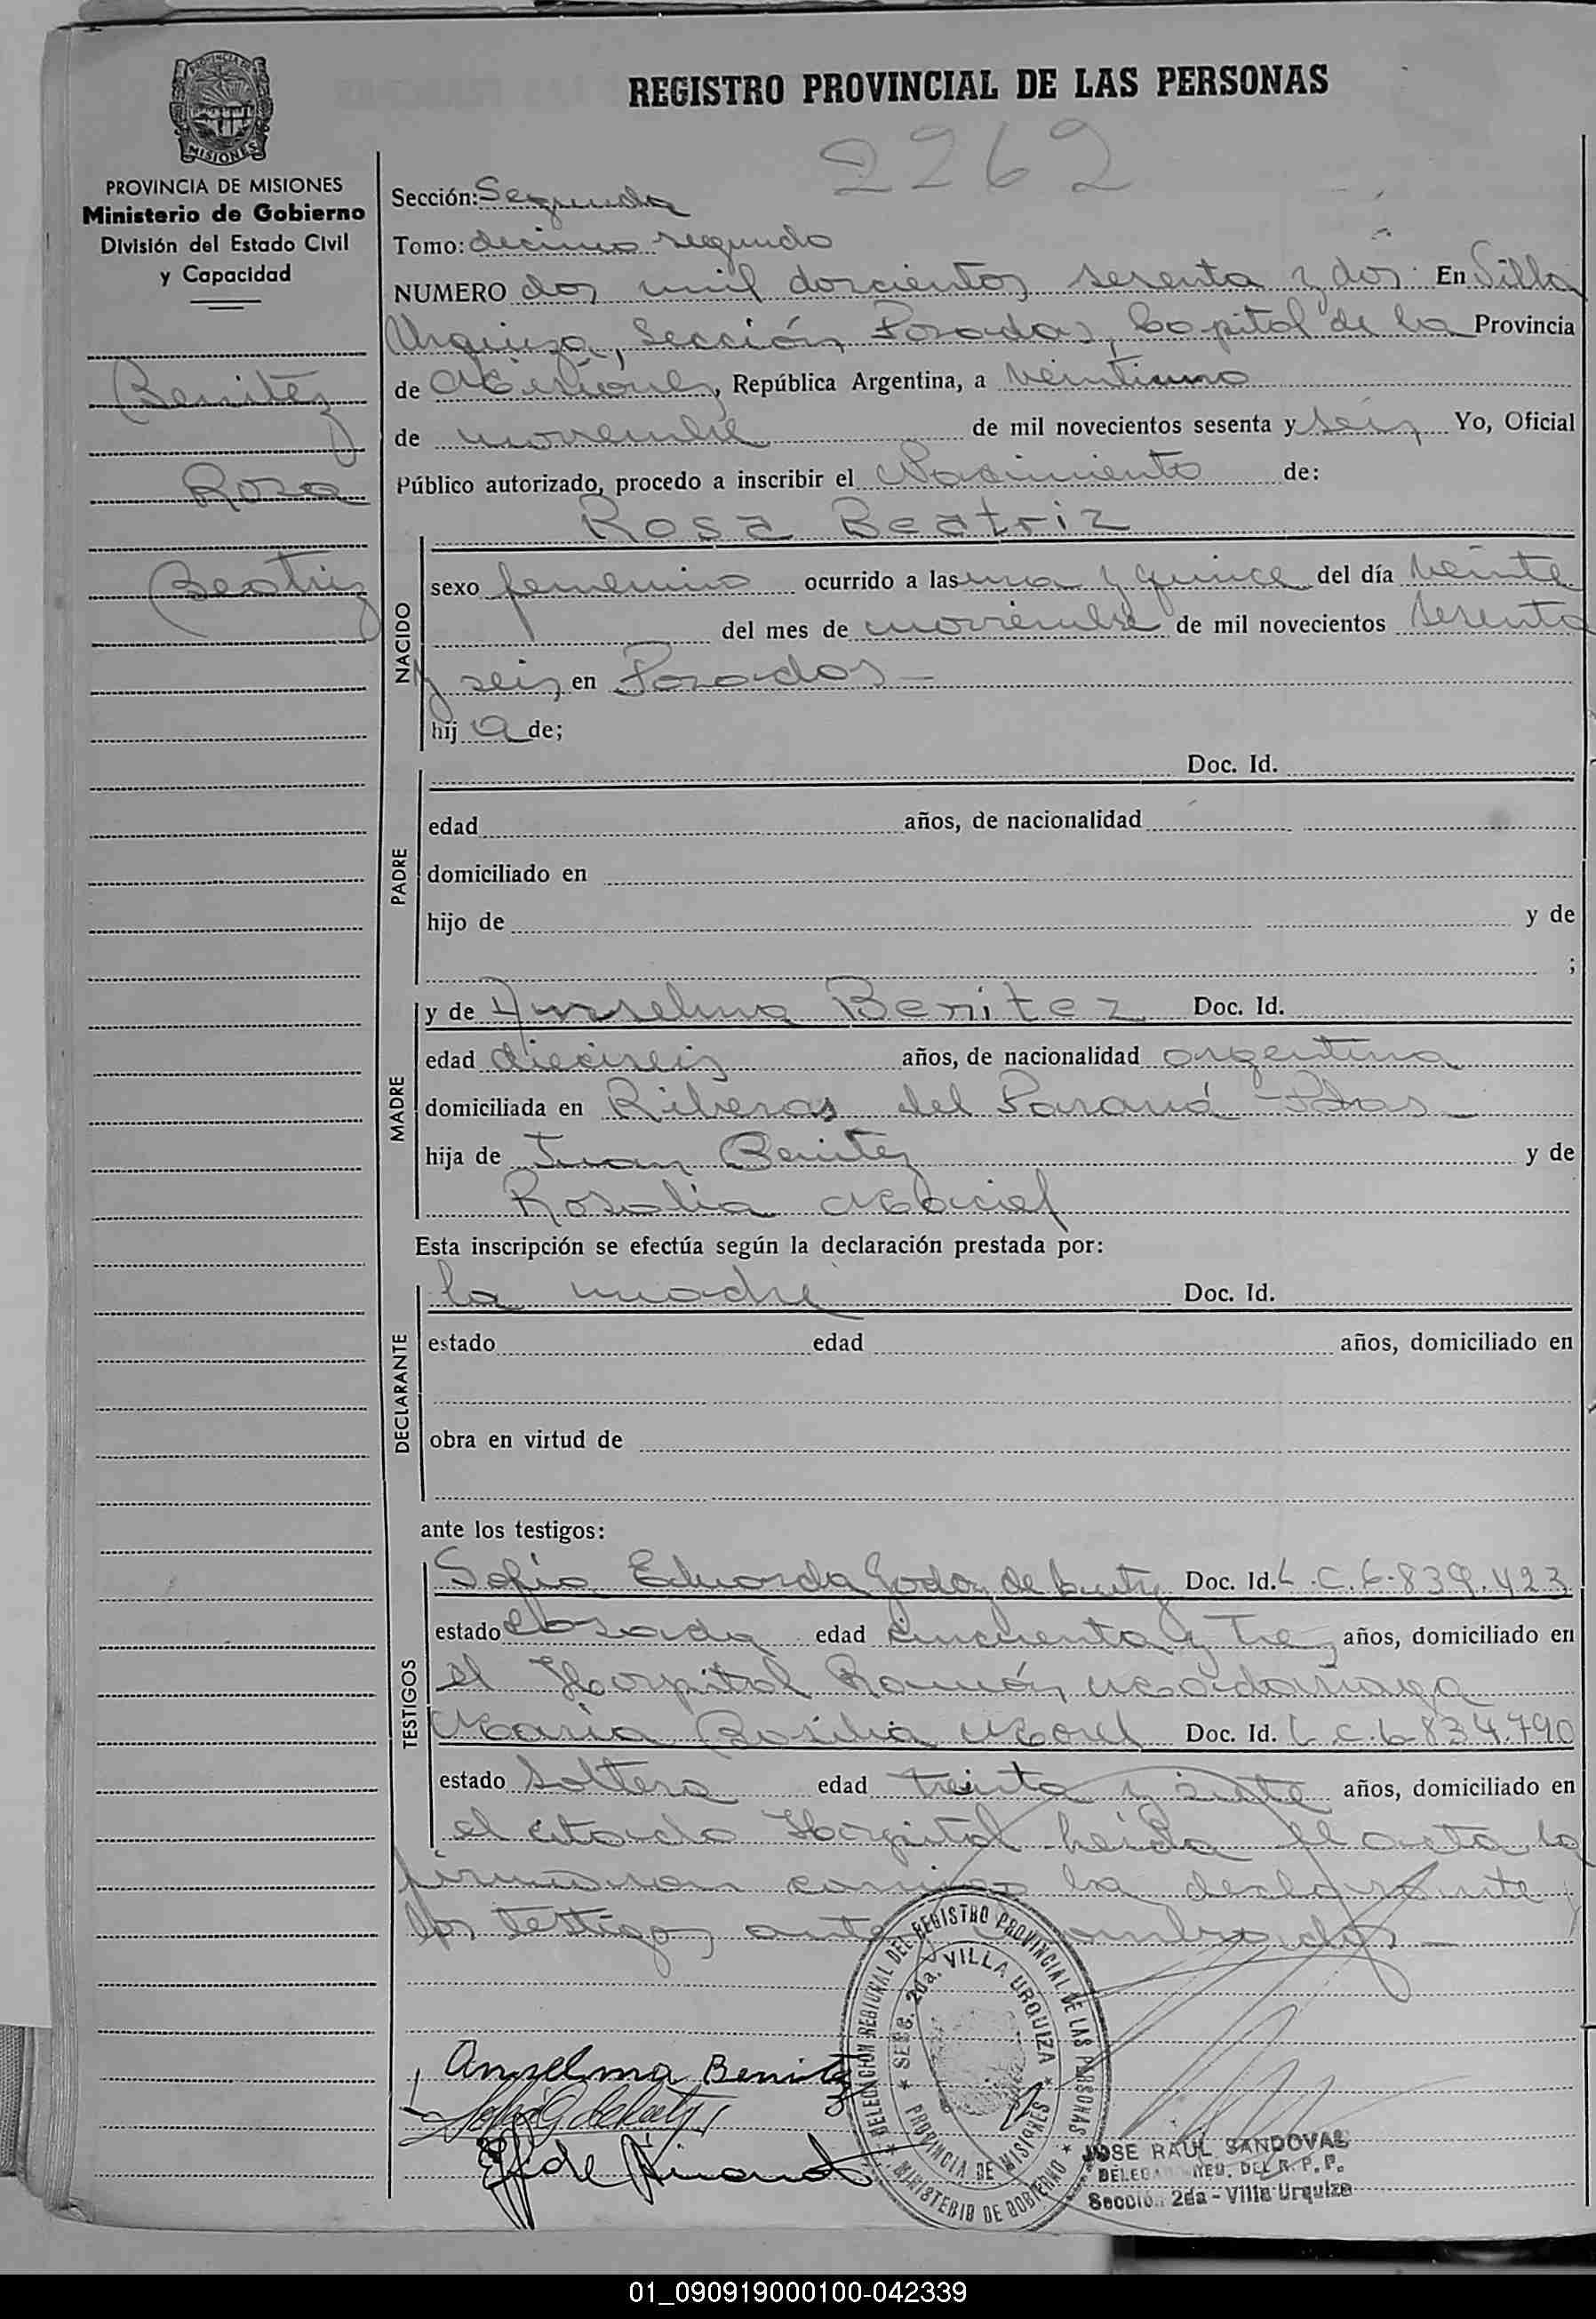 REGISTRO PROVINCIAL DE LAS PERSONAS
2262
MISIONES
PROVINCIA DE MISIONES
Ministerio de Gobierno
División del Estado Civil
y Capacidad
Benitez
Rosa
Beatriz
Sección: Segunda
Tomo: decimo segundo
NUMERO dos mil doscientos sesenta y dos En Villa
Urquiza, Sección Posadas, Capital de la Provincia
de Misiones, República Argentina, a veintiuno
de noviembre de mil novecientos sesenta y seis Yo, Oficial
Público autorizado, procedo a inscribir el Nacimiento de:
Rosa Beatriz
NACIDO
sexo femenino ocurrido a las una y quince del día veinte
del mes de noviembre de mil novecientos sesenta
y seis en Posadas
hij a de;
PADRE
Doc. Id.
edad años, de nacionalidad
domiciliado en
hijo de y de
;
MADRE
y de Anselma Benitez Doc. Id.
edad dieciseis años, de nacionalidad argentina
domiciliada en Riberas del Paraná - Pdas -
hija de Juan Benitez y de
Rosalia Maciel
Esta inscripción se efectúa según la declaración prestada por:
DECLARANTE
la madre Doc. Id.
estado edad años, domiciliado en
obra en virtud de
ante los testigos:
TESTIGOS
Sofia Eduarda Godoy de Doc. Id. L.C. 6.839.423
estado Casada edad cincuenta y tres años, domiciliado en
el Hospital Ramón Madariaga
Maria Basilia Morel Doc. Id. L.C. 6.834.790
estado Soltera edad treinta y siete años, domiciliado en
el citado Hospital leída el acta la
firmaron conmigo la declarante y
los testigos ante nombrados -
Anselma Benitez
DELEGACION REGIONAL DEL REGISTRO PROVINCIAL DE LAS PERSONAS
MINISTERIO DE GOBIERNO
SECC. 2da. VILLA URQUIZA
PROVINCIA DE MISIONES
JOSE RAUL SANDOVAL
DEL R. P. P.
Sección 2da - Villa Urquiza
01_090919000100-042339